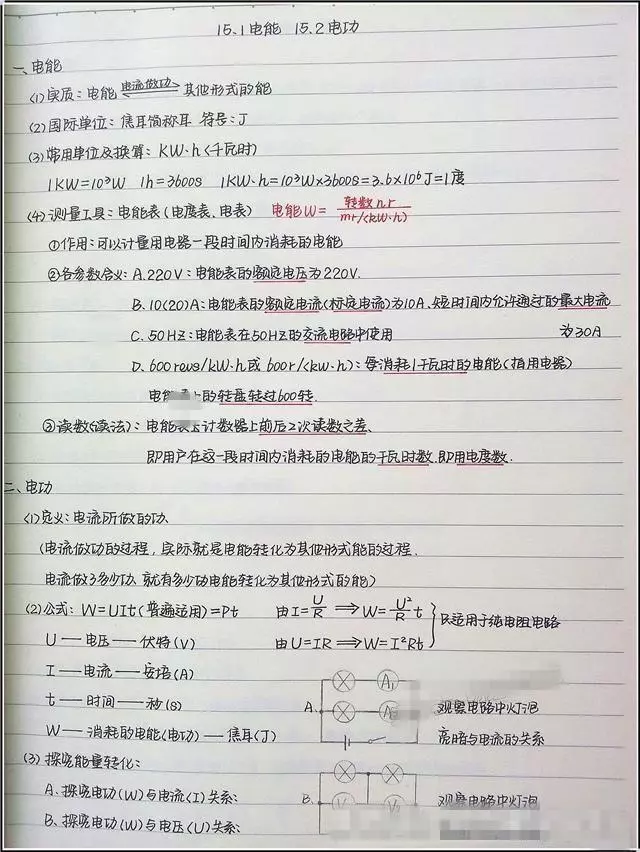 15.1电能 15.2电功
一、电能
(1)实质：电能 电流做功 其他形式的能
(2)国际单位：焦耳简称耳 符号：J
(3)常用单位及换算：KW·h(千瓦时)
1KW=10³W 1h=3600s 1KW·h=10³W×3600s=3.6×10⁶J=1度
(4)测量工具：电能表(电度表、电表) 电能W= 转数n r / mr/(kW·h)
①作用：可以计量用电器一段时间内消耗的电能
②各参数含义：A.220V：电能表的额定电压为220V.
B.10(20)A：电能表的额定电流(标定电流)为10A、短时间内允许通过的最大电流
C.50HZ：电能表在50HZ的交流电路中使用 为30A
D.600revs/kW·h或600r/(kW·h)：每消耗1千瓦时的电能(指用电器)
电能 上的转盘转过600转.
③读数(读法)：电能表 计数器上前后2次读数之差、
即用户在这一段时间内消耗的电能的千瓦时数.即用电度数.
二、电功
(1)定义：电流所做的功、
(电流做功的过程，实际就是电能转化为其他形式能的过程.
电流做了多少功、就有多少功电能转化为其他形式的能)
(2)公式：W=UIt(普遍适用)=Pt 由I=U/R ⟹W=U²/R t
U——电压——伏特(V) 由U=IR⟹W=I²Rt 只适用于纯电阻电路
I——电流——安培(A)
t——时间——秒(s) A. A₁ 观察电路中灯泡
W——消耗的电能(电功)——焦耳(J) 亮暗与电流的关系
(3)探究能量转化：
A、探究电功(W)与电流(I)关系： B. 观察电路中灯泡
B、探究电功(W)与电压(U)关系：